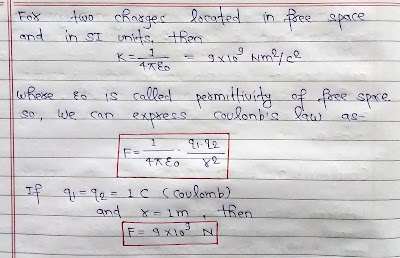 For two charges located in free space
and in SI units, then
K = 1/4πε0 = 9×10⁹ Nm²/c²
where ε0 is called permittivity of free space
so, we can express coulomb's law as-
F = 1/4πε0 · q1.q2/r2
If q1 = q2 = 1 C (coulomb)
and r = 1m, then
F = 9×10⁹ N